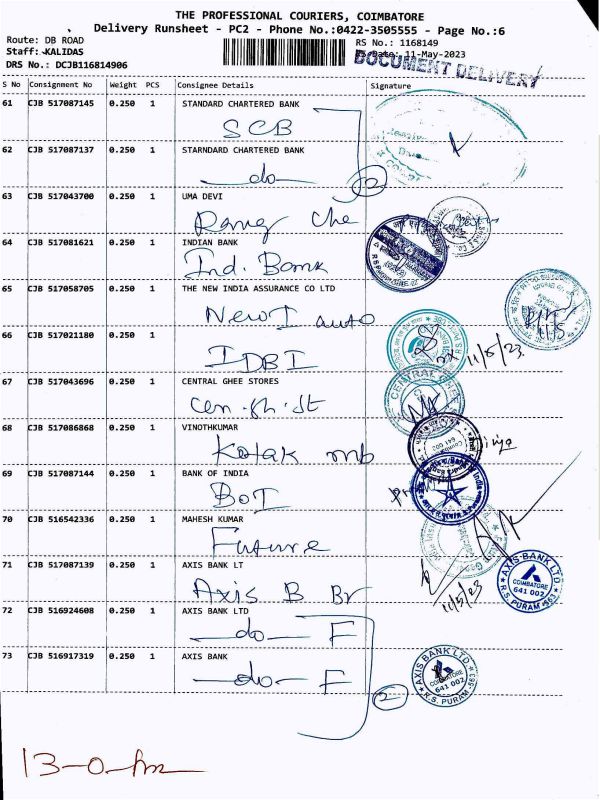 THE PROFESSIONAL COURIERS, COIMBATORE
Delivery Runsheet - PC2 - Phone No.:0422-3505555 - Page No.:6
Route: DB ROAD
RS No.: 1168149
Staff: KALIDAS
RS Date: 11-May-2023
DRS No.: DCJB116814906
DOCUMENT DELIVERY
S No Consignment No Weight PCS Consignee Details Signature
61 CJB 517087145 0.250 1 STANDARD CHARTERED BANK
SCB
62 CJB 517087137 0.250 1 STARNDARD CHARTERED BANK
do 2
63 CJB 517043700 0.250 1 UMA DEVI
Che
64 CJB 517081621 0.250 1 INDIAN BANK
Ind. Bank
65 CJB 517058705 0.250 1 THE NEW INDIA ASSURANCE CO LTD
New I auto
66 CJB 517021180 0.250 1
IDBI
11/5/23
67 CJB 517043696 0.250 1 CENTRAL GHEE STORES
CENTRAL GHEE
Cen. gh. St
68 CJB 517086868 0.250 1 VINOTHKUMAR
Kotak mb
69 CJB 517087144 0.250 1 BANK OF INDIA
BOI
70 CJB 516542336 0.250 1 MAHESH KUMAR
Future
71 CJB 517087139 0.250 1 AXIS BANK LT
Axis B Br
11/5/23
AXIS BANK LTD
COIMBATORE
641 002
R.S. PURAM
72 CJB 516924608 0.250 1 AXIS BANK LTD
do F
73 CJB 516917319 0.250 1 AXIS BANK
do F
AXIS BANK LTD
COIMBATORE
641 002
R.S. PURAM-563
2
13-0-